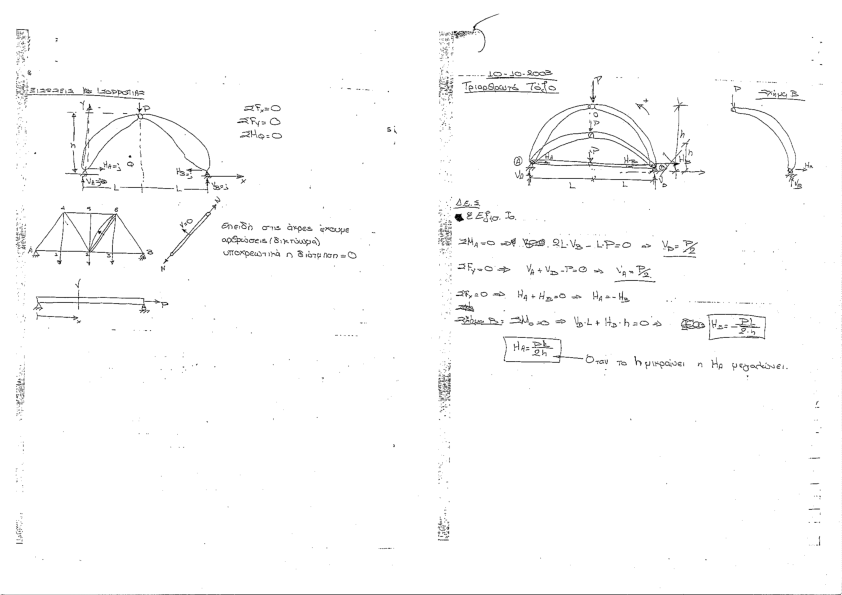 ΕΞΙΣΩΣΕΙΣ ΙΣΟΡΡΟΠΙΑΣ
ΣFx=0
ΣFy=0
P
Y
h
HA=;
VA=;
HB=;
VB=;
L
L
x
4
5
6
A
1
2
3
B
N
V=0
N
επειδή στις άκρες έχουμε
αρθρώσεις (δικτύωμα)
υποχρεωτικά η διάτμηση=0
P
x
10-10-2003
Τριαρθρωτό Τόξο
P
P
P
h
h
HA
HB
VB
L
L
Τμήμα Β
P
HB
VB
Δ.Ε.Σ
ΣMA=0 ⇒ 2L·VB - L·P=0 ⇒ VB=P/2
ΣFy=0 ⇒ VA+VB-P=0 ⇒ VA=P/2
ΣFx=0 ⇒ HA+HB=0 ⇒ HA=-HB
Τμήμα Β: ΣMo=0 ⇒ VB·L+HB·h=0 ⇒ HB=-PL/2·h
HA=PL/2h
Όταν το h μικραίνει η HA μεγαλώνει.